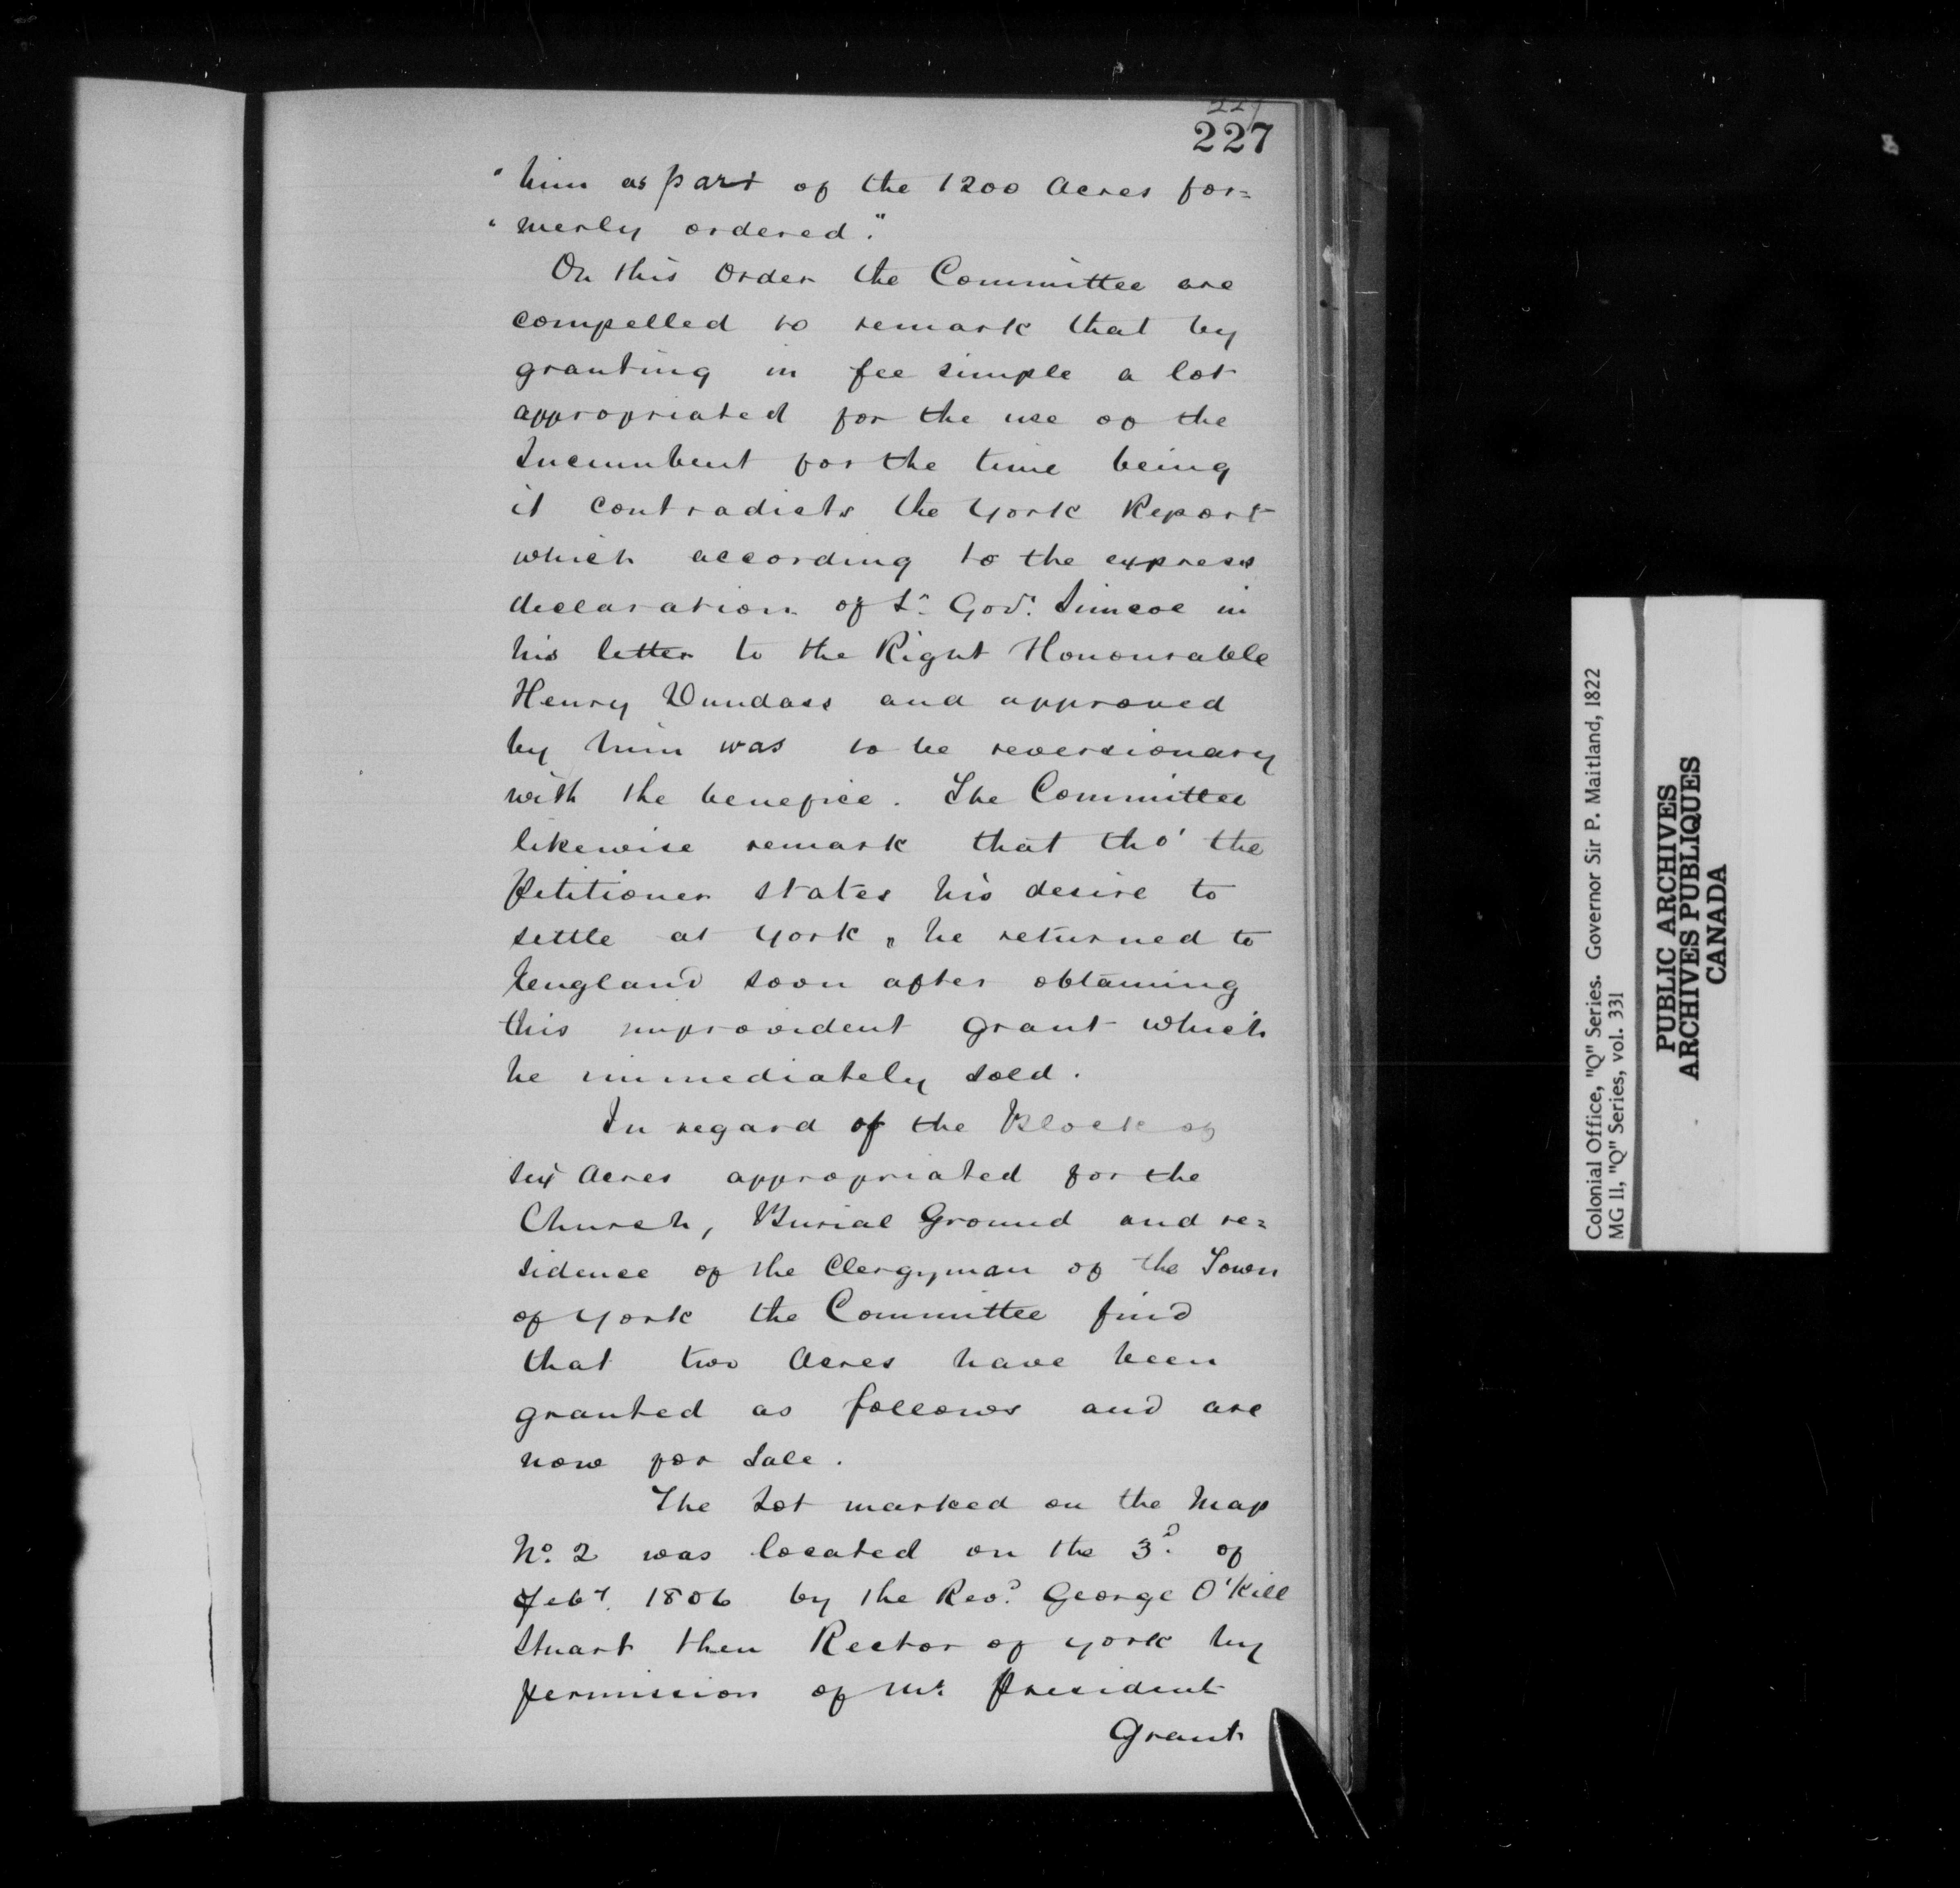 227
227
" him as part of the 1200 Acres for=
" merly ordered."
On this Order the Committee are
compelled to remark that by
granting in fee simple a lot
appropriated for the use of the
Incumbent for the time being
it contradicts the York Report
which according to the express
declaration of Lt. Govr. Simcoe in
his letter to the Right Honourable
Henry Dundass and approved
by him was to be reversionary
with the benefice. The Committee
likewise remark that tho' the
Petitioner states his desire to
settle at York, he returned to
England soon after obtaining
this improvident grant which
he immediately sold.
In regard of the Block of
six Acres appropriated for the
Church, Burial Ground and re=
sidence of the Clergyman of the Town
of York the Committee find
that two Acres have been
granted as follows and are
now for Sale.
The Lot marked on the Map
No. 2 was located on the 3d. of
Feby. 1806 by the Revd. George O'Kill
Stuart then Rector of York by
permission of Mr. President
Grant
Colonial Office, "Q" Series. Governor Sir P. Maitland, 1822
MG 11, "Q" Series, vol. 331
PUBLIC ARCHIVES
ARCHIVES PUBLIQUES
CANADA